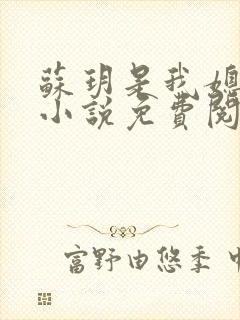 蘇玥是我媳
小說免費閱
富野由悠季 中